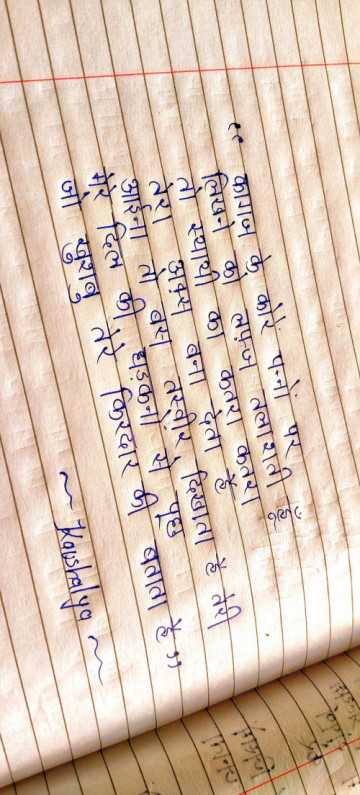 “ कागज के कोरे पन्नों पर
लिखने को लफ्ज तलाशती हूँ
तो स्याही का कतरा कतरा
तेरा अक्स बना देता है
आईना तो बस तस्वीर दिखाता है तेरी
मेरे दिल की धड़कनों से पूछ
जो खुशबु तेरे किरदार की बताता है ”
~ Kaushalya ~